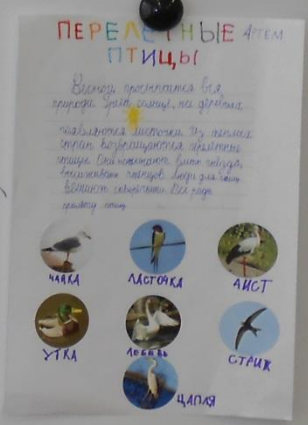 ПЕРЕЛЕТНЫЕ АРТЕМ
ПТИЦЫ
Весной просыпается вся
природа. Греет солнце, на деревьях
появляются листочки. Из теплых
стран возвращаются перелетные
птицы. Они начинают вить гнёзда,
высиживать птенцов. Люди для птиц
вешают скворечники. Все рады
прилёту птиц.
ЧАЙКА ЛАСТОЧКА АИСТ
УТКА ЛЕБЕДЬ СТРИЖ
ЦАПЛЯ